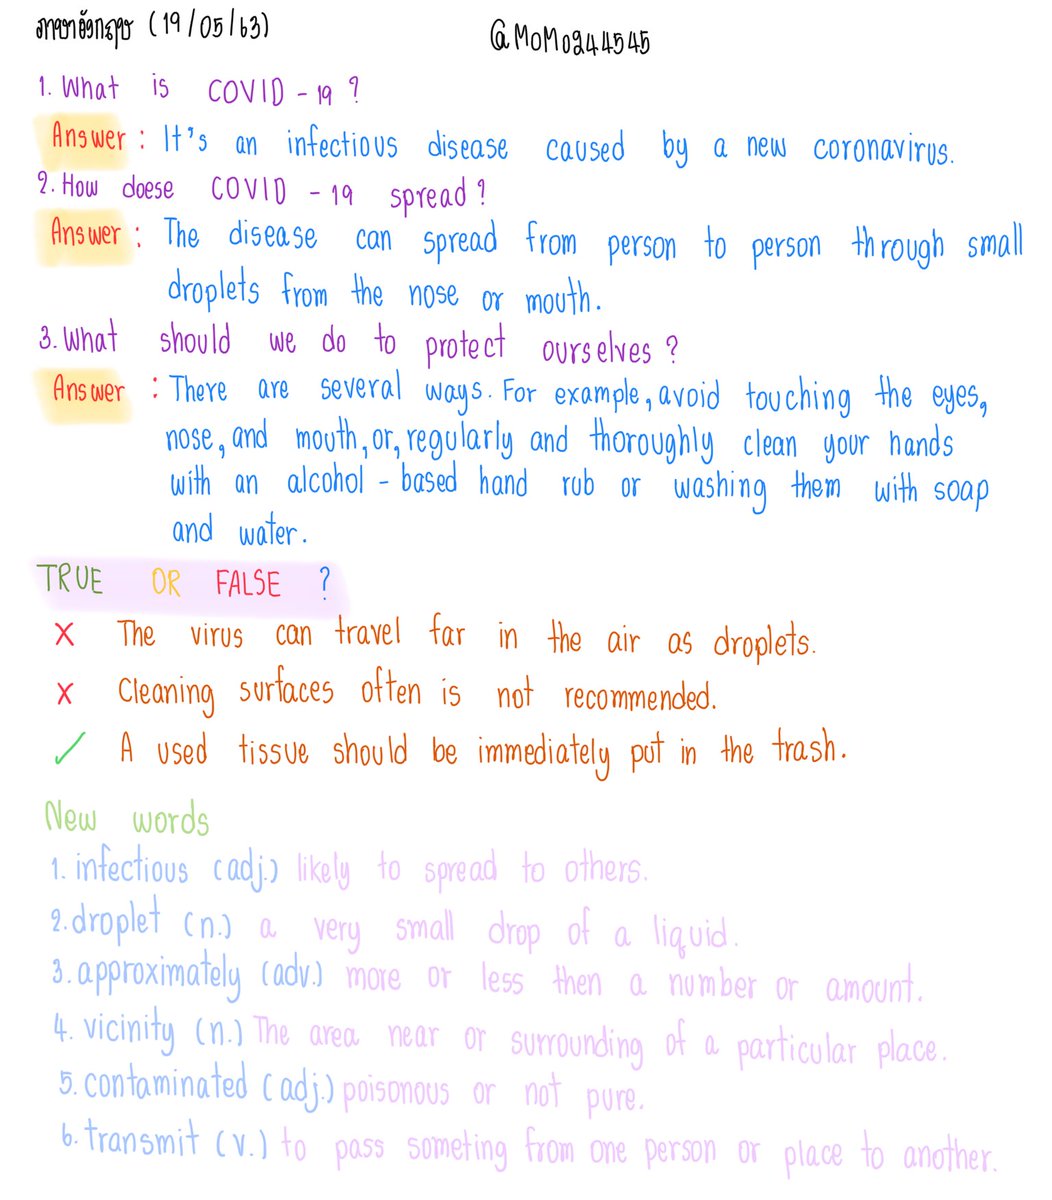 ภาษาอังกฤษ (19/05/63)
@MoMo244545
1. What is COVID - 19 ?
Answer : It's an infectious disease caused by a new coronavirus.
2. How doese COVID - 19 spread ?
Answer : The disease can spread from person to person through small
droplets from the nose or mouth.
3. What should we do to protect ourselves ?
Answer : There are several ways. For example, avoid touching the eyes,
nose, and mouth, or, regularly and thoroughly clean your hands
with an alcohol - based hand rub or washing them with soap
and water.
TRUE OR FALSE ?
✗ The virus can travel far in the air as droplets.
✗ Cleaning surfaces often is not recommended.
✓ A used tissue should be immediately put in the trash.
New words
1. infectious (adj.) likely to spread to others.
2. droplet (n.) a very small drop of a liquid.
3. approximately (adv.) more or less then a number or amount.
4. vicinity (n.) The area near or surrounding of a particular place.
5. contaminated (adj.) poisonous or not pure.
6. transmit (v.) to pass someting from one person or place to another.